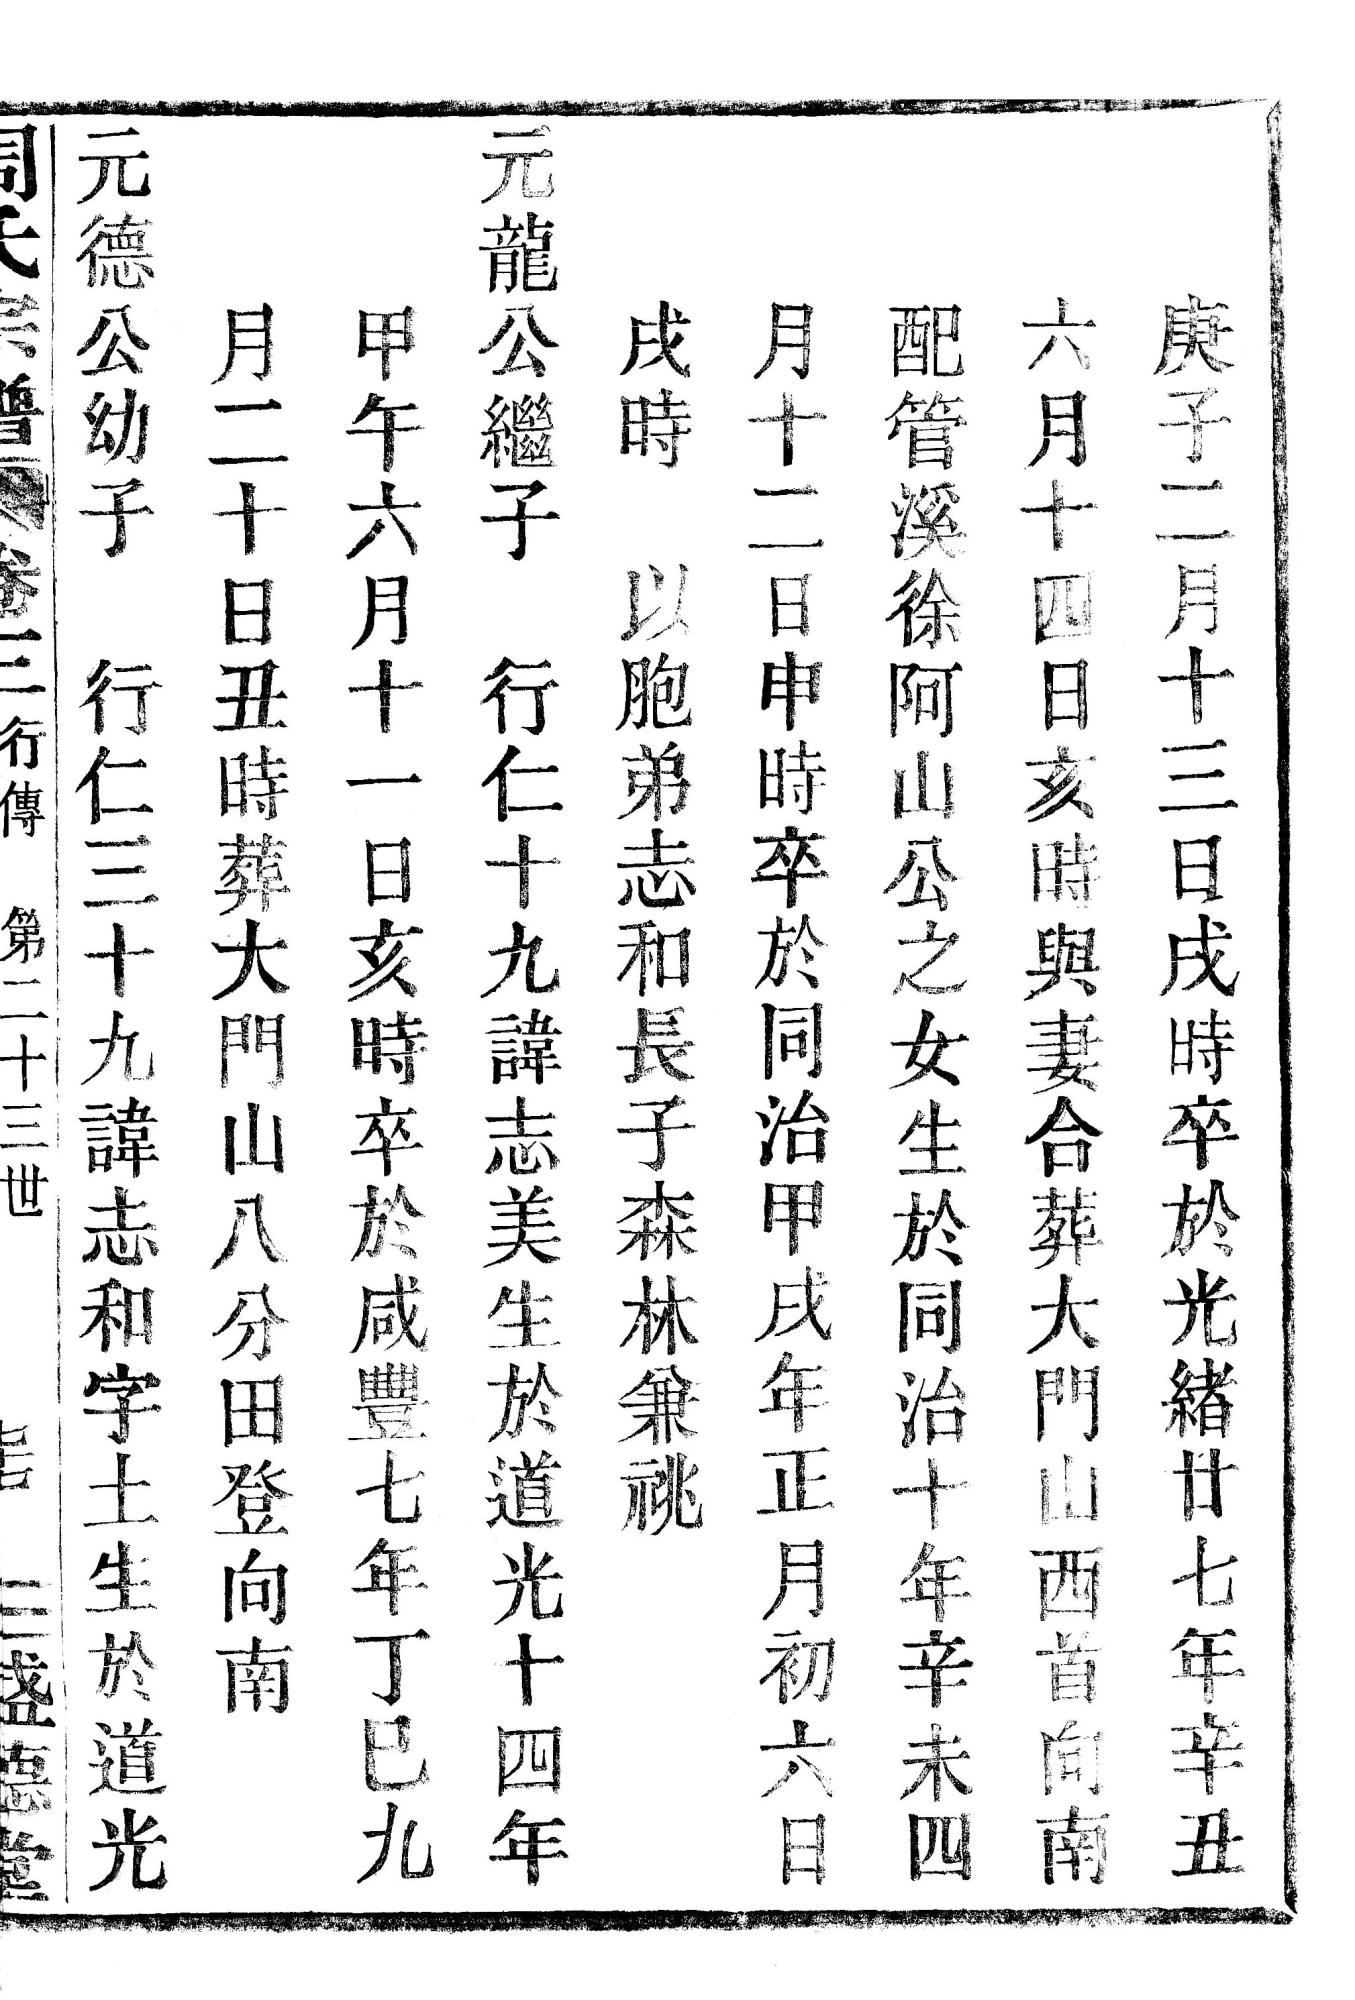 庚子二月十三日戌時卒於光緒廿七年辛丑
六月十四日亥時與妻合葬大門山西首向南
配管溪徐阿山公之女生於同治十年辛未四
月十二日申時卒於同治甲戌年正月初六日
戌時　以胞弟志和長子森林兼祧
元龍公繼子　行仁十九諱志美生於道光十四年
甲午六月十一日亥時卒於咸豐七年丁巳九
月二十日丑時葬大門山八分田登向南
元德公幼子　行仁三十九諱志和字土生於道光
周氏宗譜　卷三　行傳　第二十三世　盛德堂